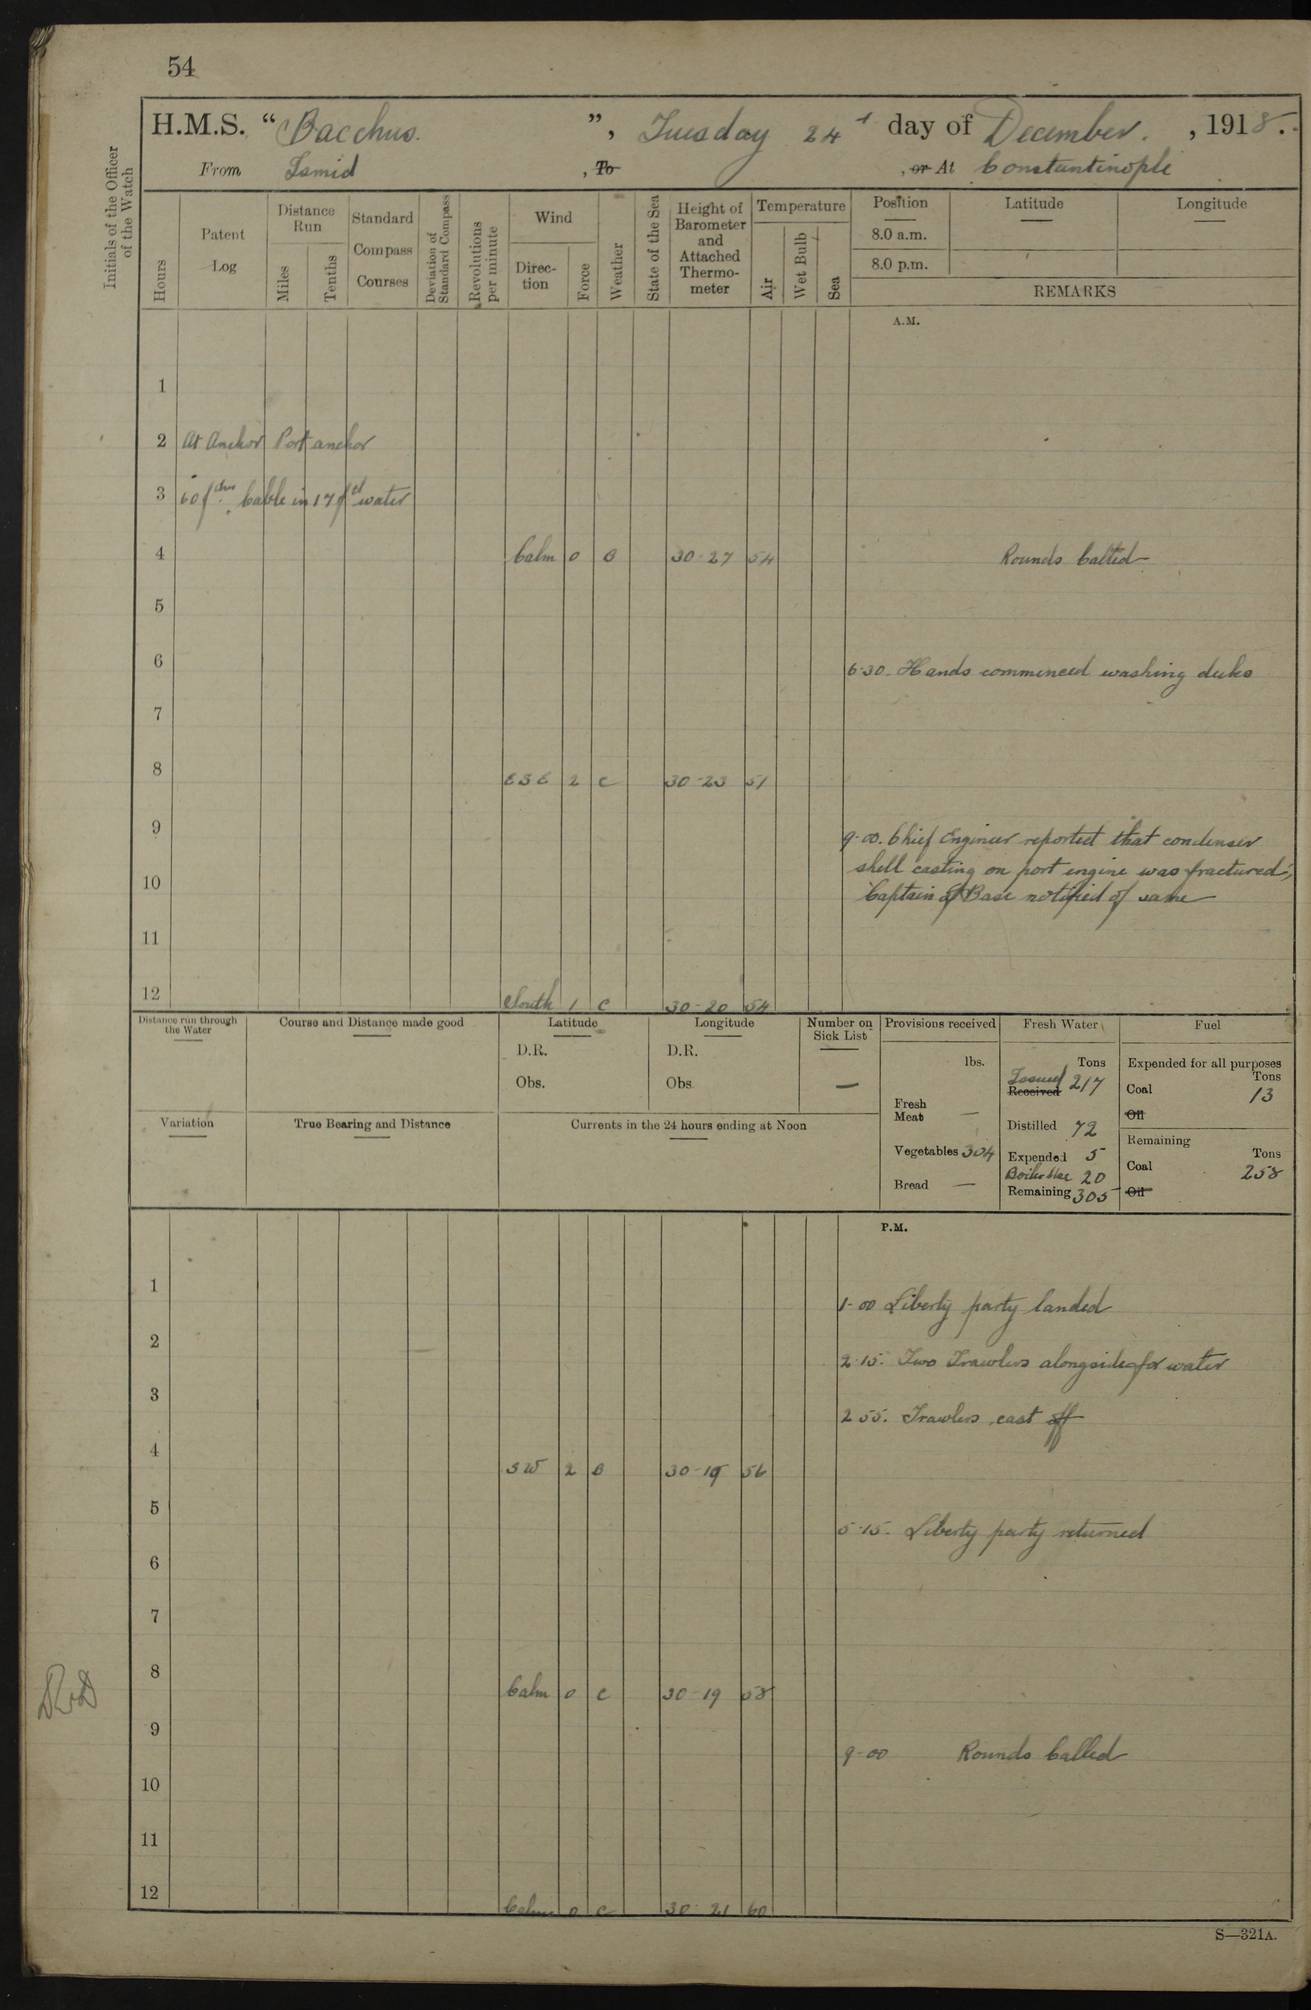 54
H.M.S. “Bacchus.”, Tuesday 24th day of December., 1918.
From Ismid, To, or At Constantinople
Initials of the Officer of the Watch
Hours
Patent Log
Distance Run
Miles
Tenths
Standard Compass Courses
Deviation of Standard Compass
Revolutions per minute
Wind
Direction
Force
Weather
State of the Sea
Height of Barometer and Attached Thermometer
Temperature
Air
Wet Bulb
Sea
Position
8.0 a.m.
8.0 p.m.
Latitude
Longitude
REMARKS
A.M.
1
2 At Anchor Port anchor
3 60 fthms Cable in 17 f water
4 Calm 0 B 30-27 54 Rounds Called
5
6
6-30. Hands commenced washing decks
7
8 ESE 2 C 30-23 51
9
9-00. Chief Engineer reported that condenser
shell casting on port engine was fractured,
10
Captain of Base notified of same
11
12 South 1 C 30-20 54
Distance run through the Water
Course and Distance made good
Latitude
D.R.
Obs.
Longitude
D.R.
Obs
Number on Sick List
—
Provisions received
lbs.
Fresh Meat —
Vegetables 304
Bread —
Fresh Water
Tons
Issued
Received 217
Distilled 72
Expended 5
Boiler Use 20
Remaining 305
Fuel
Expended for all purposes
Tons
Coal 13
Oil
Remaining
Tons
Coal 258
Oil
Variation
True Bearing and Distance
Currents in the 24 hours ending at Noon
P.M.
1
1-00 Liberty party landed
2
2-15. Two Trawlers alongside for water
3
2 55. Trawlers cast off
4
SW 2 B 30-19 56
5
5-15. Liberty party returned
6
7
8
Calm 0 C 30-19 58
9
9-00 Rounds Called
10
11
12 Calm 0 C 30-21 60
S—321A.